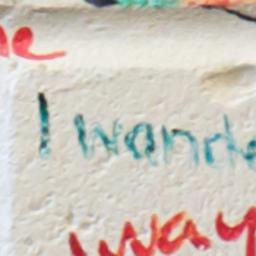 I wande
way